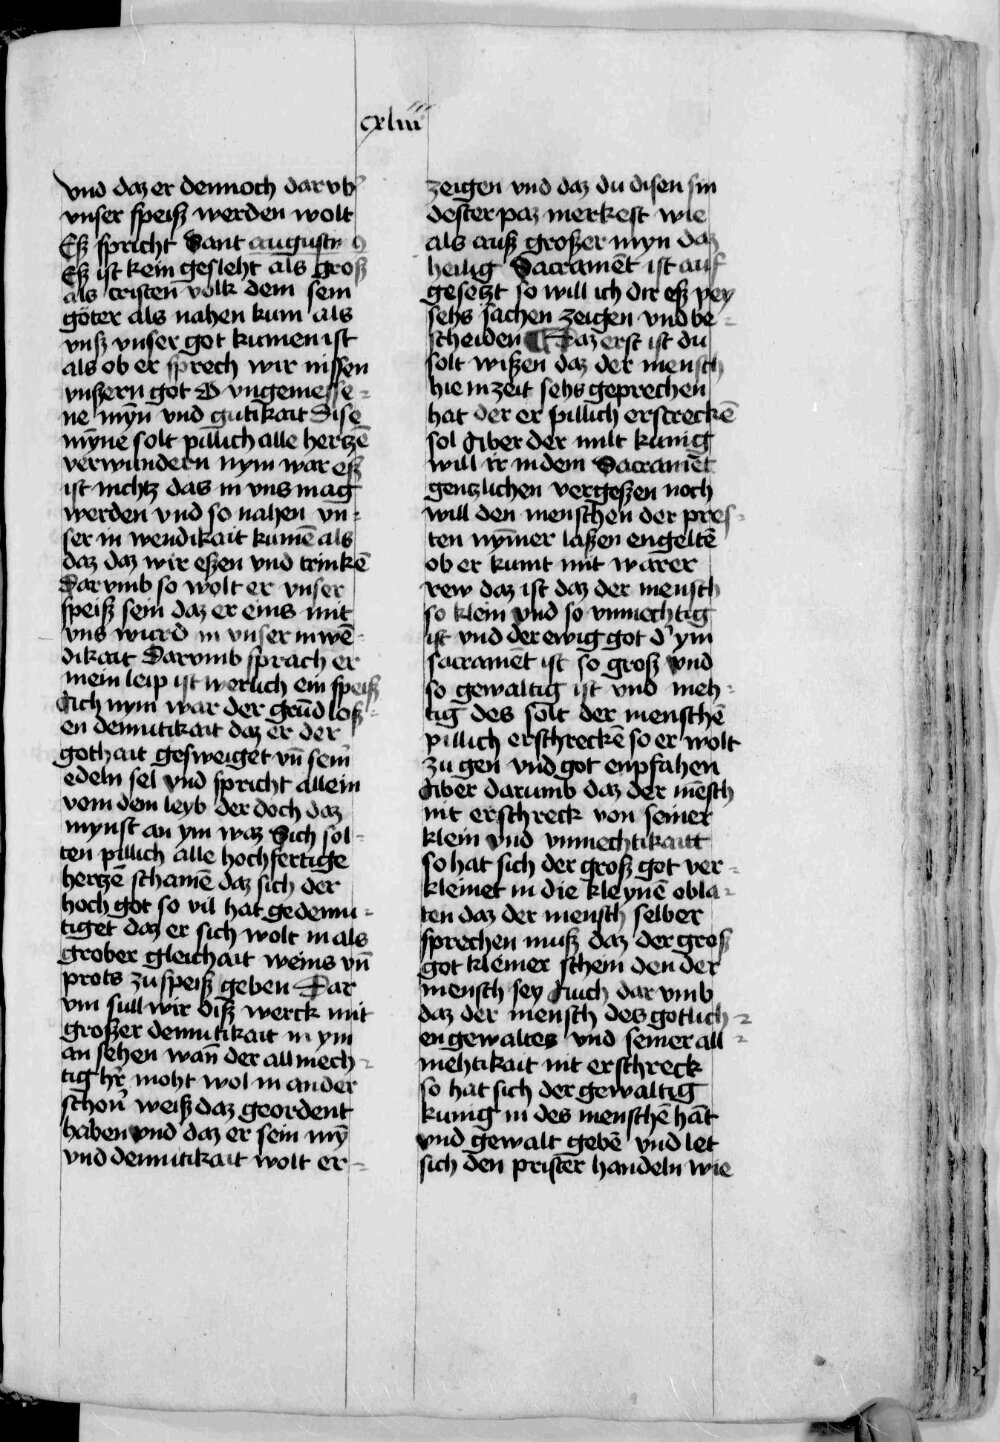 cxliii
vnd daz er dennoch darvb
vnser speiß werden wolt
Eß spricht Sant augustin9
Eß ist kein gesleht als groß
als cristen volk dem sein
göter als nahen kum als
vnß vnser got kumen ist
als ob er sprech wir nissen
vnßern got O vngemesse-
ne mÿn vnd gutikait Dise
mÿne solt pillich alle hertzē
verwundern nym war eß
ist nichtz das in vns mag
werden vnd so nahen vn-
ser in wendikait kumē als
daz daz wir eßen vnd trinkē
Darvmb so wolt er vnser
speiß sein daz er eins mit
vns wurd in vnser inwē-
dikait Darvmb sprach er
mein leip ist werlich ein speiß
Ach nym war der grūdloß-
en demutikait daz er der
gothait gesweiget vn̄ seinˀ
edeln sel vnd spricht allein
vom dem leyb der doch daz
mynst an ym waz Sich sol-
ten pillich alle hochfertige
hertzē schamē daz sich der
hoch got so vil hat gedemu-
tiget daz er sich wolt in als
grober gleichait weins vn̄
prots zu speiß geben Dar
vm sull wir diß werck mit
großer demutikait in ym
an sehen wān der allmech-
tig hr̄ moht wol in ander
schonˀ weiß daz geordent
haben vnd daz er sein mȳ
vnd demutikait wolt er-
zeigen vnd daz du disen sin
dester paz merkest wie
als auß großer myn daz
heilig Sacramēt ist auf
gesetzt so will ich dir eß pey
sehs sachen zeigen vnd be-
scheiden Daz erst ist du
solt wißen daz der mensch
hie in zeit sehs geprechen
hat der er pillich erstreckē
sol Aber der milt kunig
will ir in dem Sacramēt
gentzlichen vergeßen noch
will den menschen der pres-
ten nȳmer laßen engeltē
ob er kumt mit warer
rew daz ist daz der mensch
so klein vnd so vnmechtig
ist vnd der ewig got dˀ ym
sacramēt ist so groß vnd
so gewaltig ist vnd meh-
tig des solt der menschē
pillich erschreckē so er wolt
zu gen vnd got enpfahen
Aber darumb daz der mēsch
nit erschreck von seiner
klein vnd vnmechtikaitt
so hat sich der groß got ver-
kleinet in die kleynē obla-
ten daz der mensch selber
sprechen muß daz der groß
got kleiner schein den der
mensch sey Auch darvmb
daz der mensch des gotlich-
en gewaltes vnd seiner all-
mehtikait nit erschreck
so hat sich der gewaltig
kunig in des menschē hāt
vnd gewalt gebē vnd let
sich den prister handeln wie